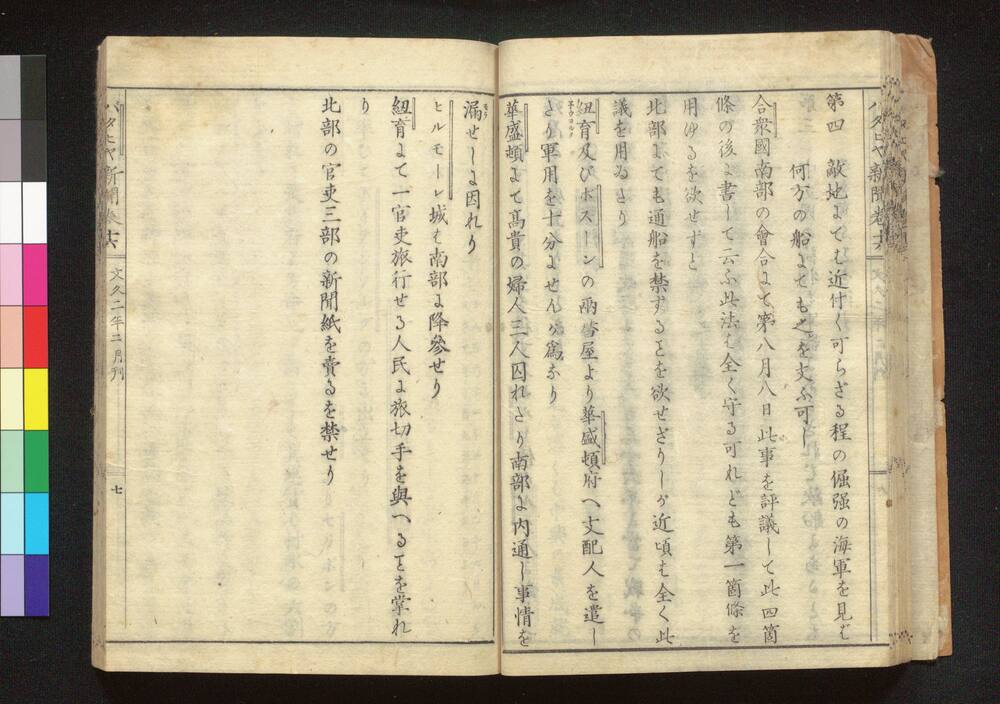 第四　敵地よてむ近付く可らざる程の倔强の海軍を見ば
何方の船よてもこを丈ふ可し
合衆國南部の會合よて第八月八日此事を評議して此四箇
條の後よ書して云ふ此法も全く守る可れども第一箇條を
用ゆるを欲せずと
北部よても通船を禁ずるヿを欲せざりしが近頃も全く此
議を用ゐさり
紐育及びボストーンの兩替屋より華盛頓府へ支配人を遣し
さり軍用を十分よせんが爲なり
華盛頓よて高貴の婦人三人囚れさり南部よ内通し事情を
漏せしよ因れり
ヒルモーレ城も南部よ降參せり
紐育よて一官吏旅行せる人民よ旅切手を與へるヿを掌れ
り
北部の官吏三部の新聞紙を賣るを禁せり
バタヒヤ新聞卷十六
文久二年二月刊
七